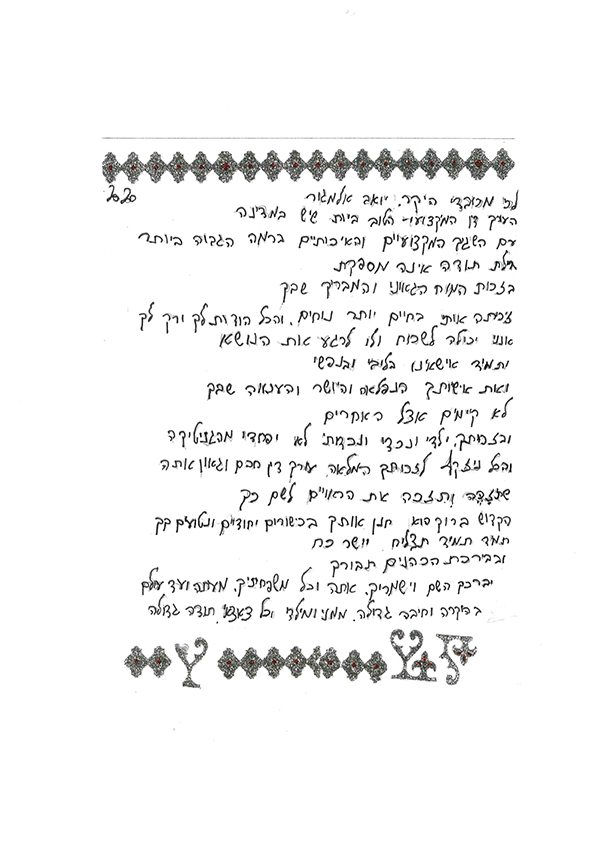 2020
לכ׳ מכובדי היקר, יואב אלמגור
העורך דין המקצועי הטוב ביותר שיש במדינה
עם השגיך המקצועיים והאיכותיים ברמה הגבוה ביותר
מילת תודה אינה מספקת
בזכות המוח הגאוני והמבריק שבך
זכיתה אותי בחיים יותר נוחים, והכל הודות לך ורק לך
אינני יכולה לשכוח ולו לרגע את הנושא
ותמיד אישאינו בליבי ובנפשי
ואת אישותך הנפלאה והיושר והענווה שבך
לא קיימים אצל האחרים
ובזכותך ילדי ונכדי ונכדתי לא יפחדו מהגניטיקה
והכל ניזקף לזכותך המלאה עורך דין חכם וגאון אתה
שתזכה ותזכה את הראויים לשם כך
הקדוש ברוך הוא חנן אותך בכישורים יחודיים ונטועים בך
תמיד תמיד תצליח יישר כח
ובבירכת הכהנים תבורך
יברכך השם וישמריך, אתה וכל משפחתיך, מעתה ועד עולם
בהיקרה וחיבה גדולה, ממני ומילדי וכל צאצאי תודה גדולה